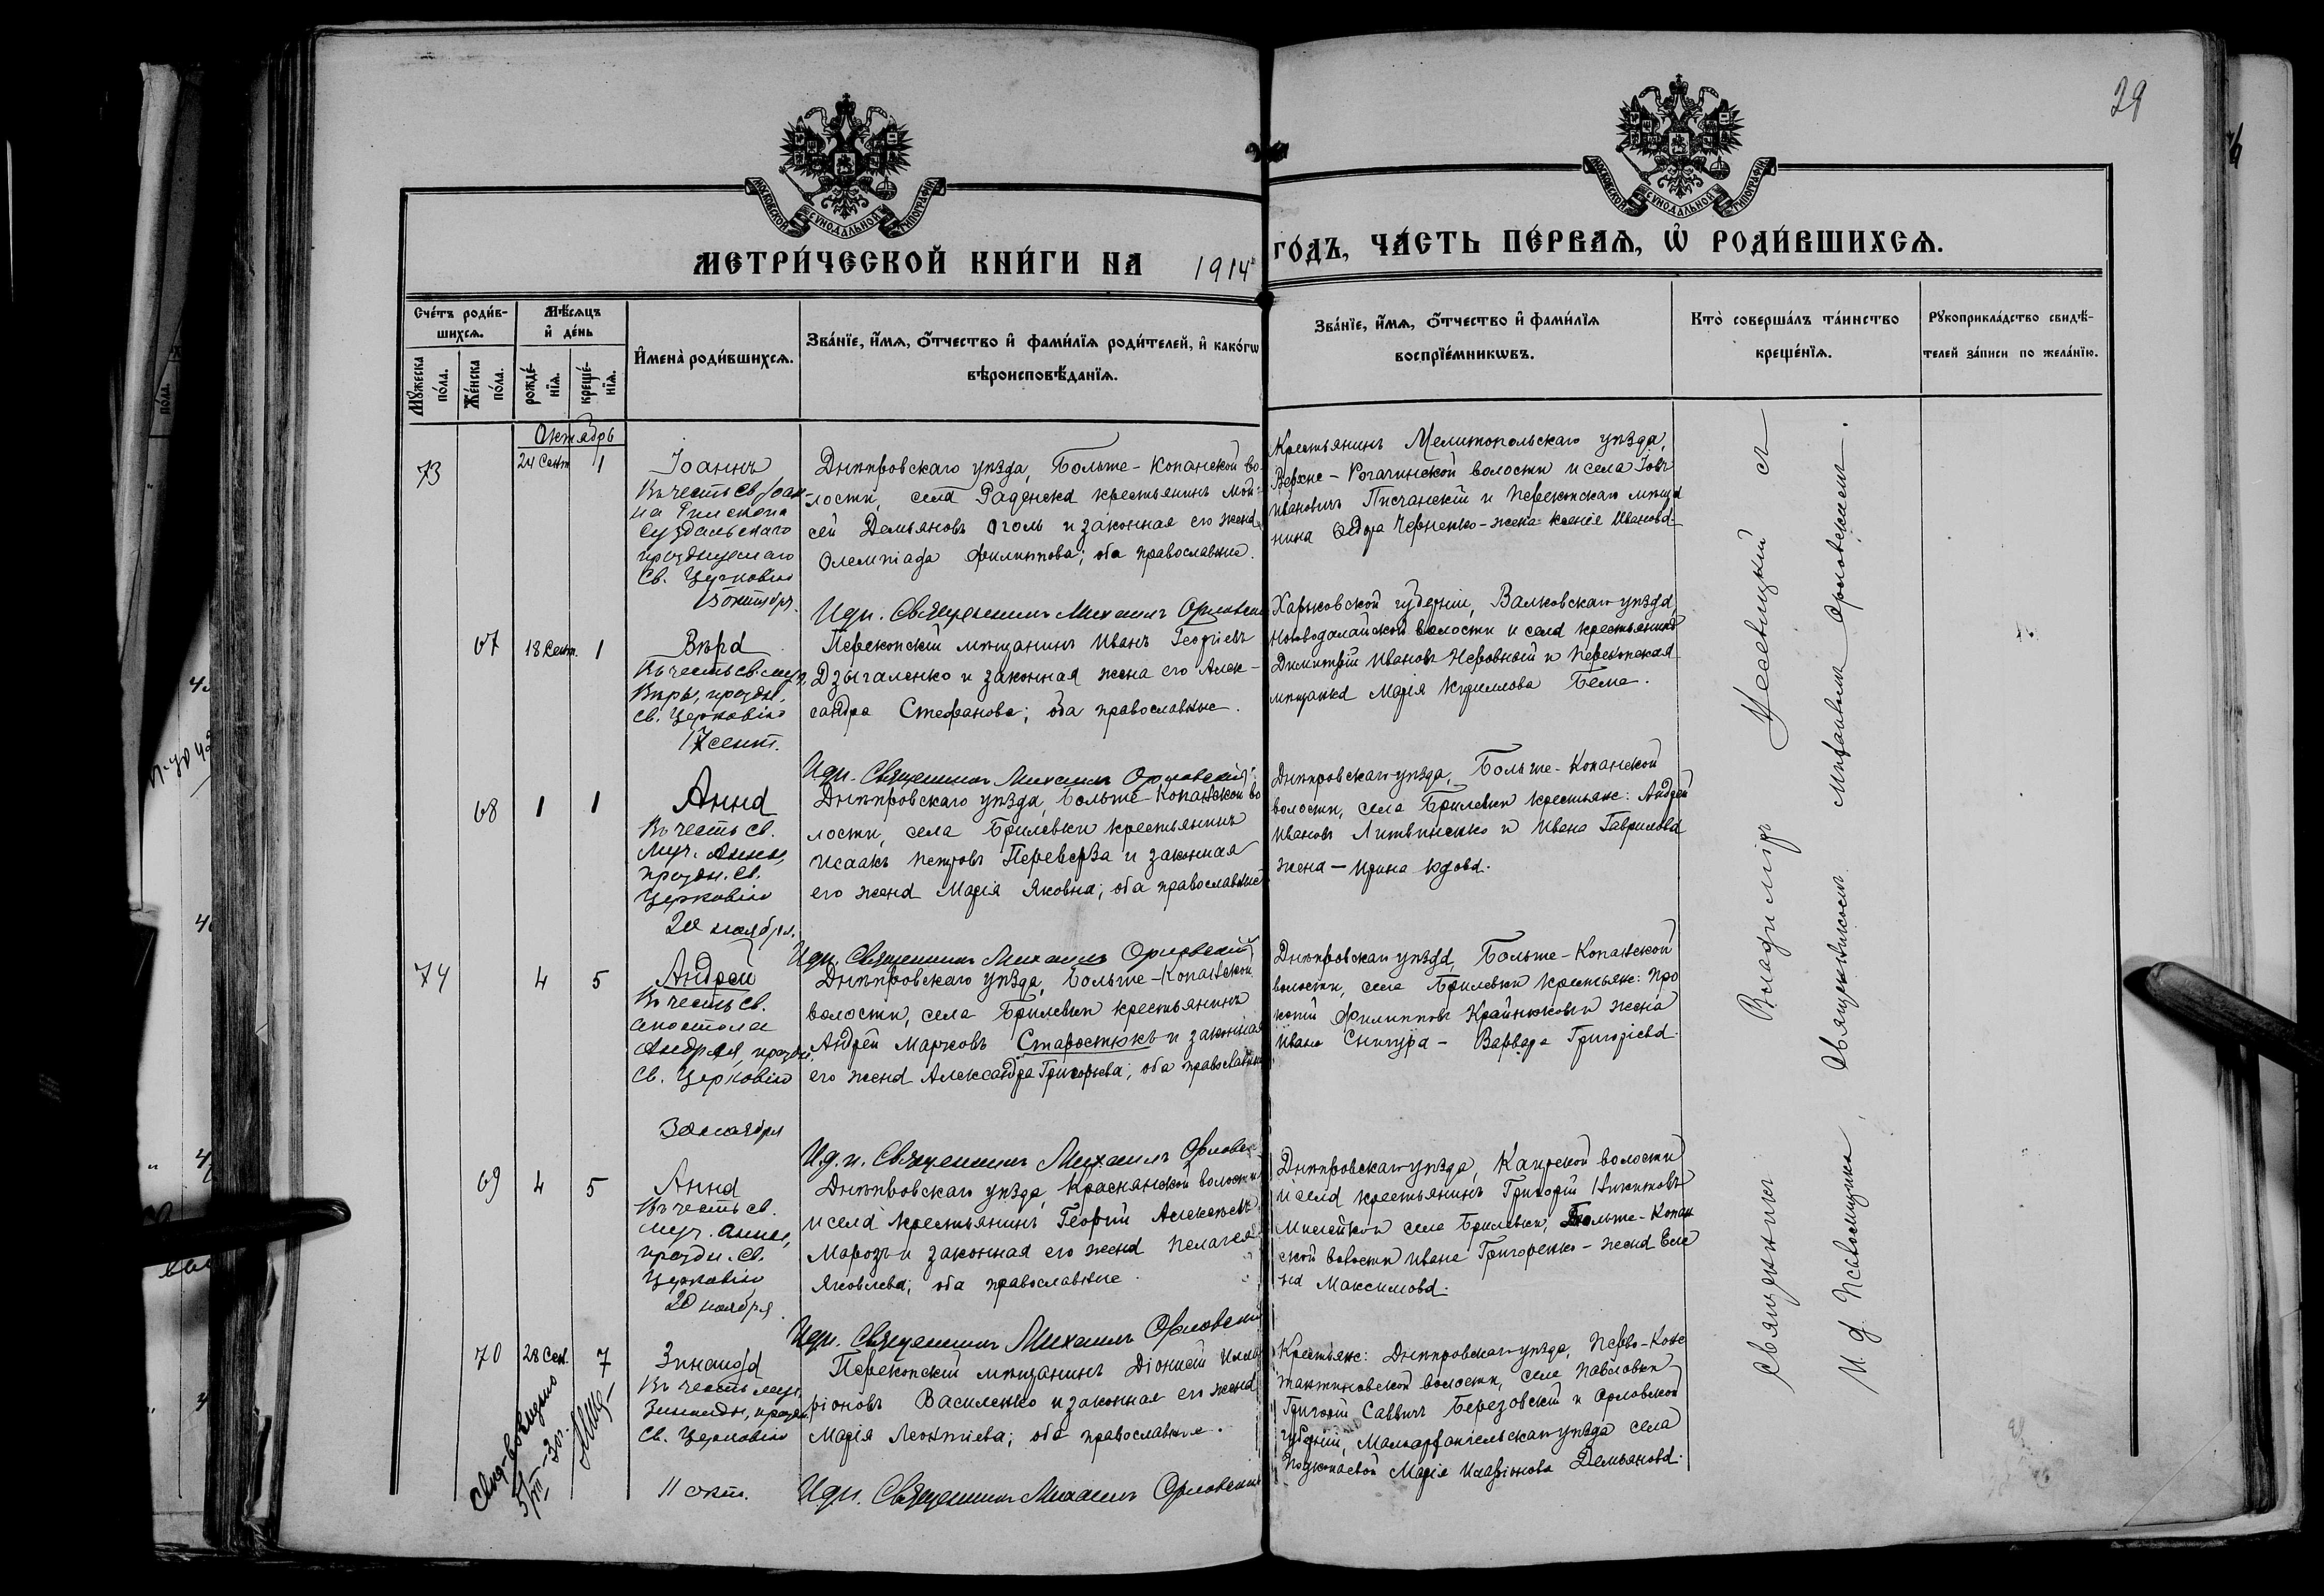 29
МОСКОВСКОЙ СУНОДАЛЬНОЙ ТИПОГРАФІИ
МОСКОВСКОЙ СУНОДАЛЬНОЙ ТИПОГРАФІИ
МЕТРИ́ЧЕСКОЙ КНИ́ГИ НА 1914 ГО́ДЪ, ЧА́СТЬ ПЕ́РВАѦ, Ѡ҆ РОДИ́ВШИХСѦ.
Сче́тъ роди́в-
шихсѧ.
Мꙋ́жеска по́ла.
Же́нска по́ла.
Мѣ́сѧцъ
и҆ де́нь
рожде́-
нїѧ.
креще́-
нїѧ.
И҆мена̀ роди́вшихсѧ.
Зва́нїе, и҆́мѧ, ѻ҆́тчество и҆ фами́лїѧ роди́телей, и҆ како́гѡ
вѣроисповѣ́данїѧ.
Зва́нїе, и҆́мѧ, ѻ҆́тчество и҆ фами́лїѧ
воспрїе́мникѡвъ.
Кто̀ соверша́лъ та́инство
креще́нїѧ.
Рꙋкоприкла́дство свидѣ́-
телей за́писи по жела́нїю.
Октябрь
73
24 Сент. 1
Іоаннъ
Въ честь св. Іоан-
на Епископа
Суздальскаго
празднуемаго
Св. Церковію
15 октября.
Днѣпровскаго уѣзда, Больше-Копанской во-
лости, села Раденска крестьянинъ Мои-
сей Демьяновъ Оголь и законная его жена
Олемпіада Филиппова; оба православные.
И. д. п. Священникъ Михаилъ Орловскій
Крестьянинъ Мелитопольскаго уѣзда,
Верхне-Рогачинской волости и села Іовъ
Ивановичъ Писчанскій и Перекопскаго мѣща
нина Ѳедора Черненко-жена Ксенія Иванова
67 18 Сент. 1
Вѣра
Въ честь св. муч.
Вѣры, праздн.
св. Церковію
17 сент.
Перекопскій мѣщанинъ Иванъ Георгіевъ
Дзыгаленко и законная жена его Алек-
сандра Стефанова; оба православные.
И. д. п. Священникъ Михаилъ Орловскій
Харьковской губерніи, Валковскаго уѣзда,
Нововодалайской волости и села крестьянинъ
Димитрій Ивановъ Неровный и Перекопская
мѣщанка Марія Кириллова Беме.
68 1 1
Анна
Въ честь св.
муч. Анны,
праздн. св.
Церковію
20 ноября.
Днѣпровскаго уѣзда, Больше-Копанской во
лости, села Брилевки крестьянинъ
Исаакъ Петровъ Переверза и законная
его жена Марія Яковна; оба православные
И. д. п. Священникъ Михаилъ Орловскій
Днѣпровскаго уѣзда, Больше-Копанской
волости, села Брилевки крестьяне: Андрей
Ивановъ Литвиненко и Ивана Гаврилова
жена — Ирина вдова.
74 4 5
Андрей
Въ честь св.
апостола
Андрея, праздн.
Св. Церковію
30 ноября
Днѣпровскаго уѣзда, Больше-Копанской
волости, села Брилевки крестьянинъ
Андрей Марковъ Старостюкъ и законная
его жена Александра Григорьева; оба православные
И. д. п. Священникъ Михаилъ Орловск.
Днѣпровскаго уѣзда, Больше-Копанской
волости, села Брилевки крестьяне: Про
копій Филипповъ Крайнюковъ и жена
Ивана Снигура — Варвара Григоріева.
69 4 5
Анна
Въ честь св.
муч. Анны,
праздн. св.
Церковію
20 ноября
Днѣпровскаго уѣзда, Краснянской волости
и села крестьянинъ Георгій Алексѣевъ
Марозъ и законная его жена Пелагея
Яковлева; оба православные.
И. д. п. Священникъ Михаилъ Орловскій
Днѣпровскаго уѣзда, Каирской волости
и села крестьянинъ Григорій Никитовъ
села Брилевки, Больше-Копан
ской волости Ивана Григоренко — жена Еле
на Максимова.
70 28 Сен. 7
Зинаида
Въ честь муч.
Зинаиды, праздн.
Св. Церковію
11 окт.
Перекопскій мѣщанинъ Діонисій Илла
ріоновъ Василенко и законная его жена
Марія Леонтіева; оба православные.
И. д. п. Священникъ Михаилъ Орловскій
Крестьяне: Днѣпровскаго уѣзда, Перво-Конс
тантиновской волости, села Павловки
Григорій Саввичъ Березовскій и Орловской
губерніи, Малоархангельскаго уѣзда села
Подкопаевой Марія Иларіонова Демьянова.
Священникъ Владиміръ Усевицкій съ
И. д. Псаломщика, Священникомъ Михаиломъ Орловскимъ.